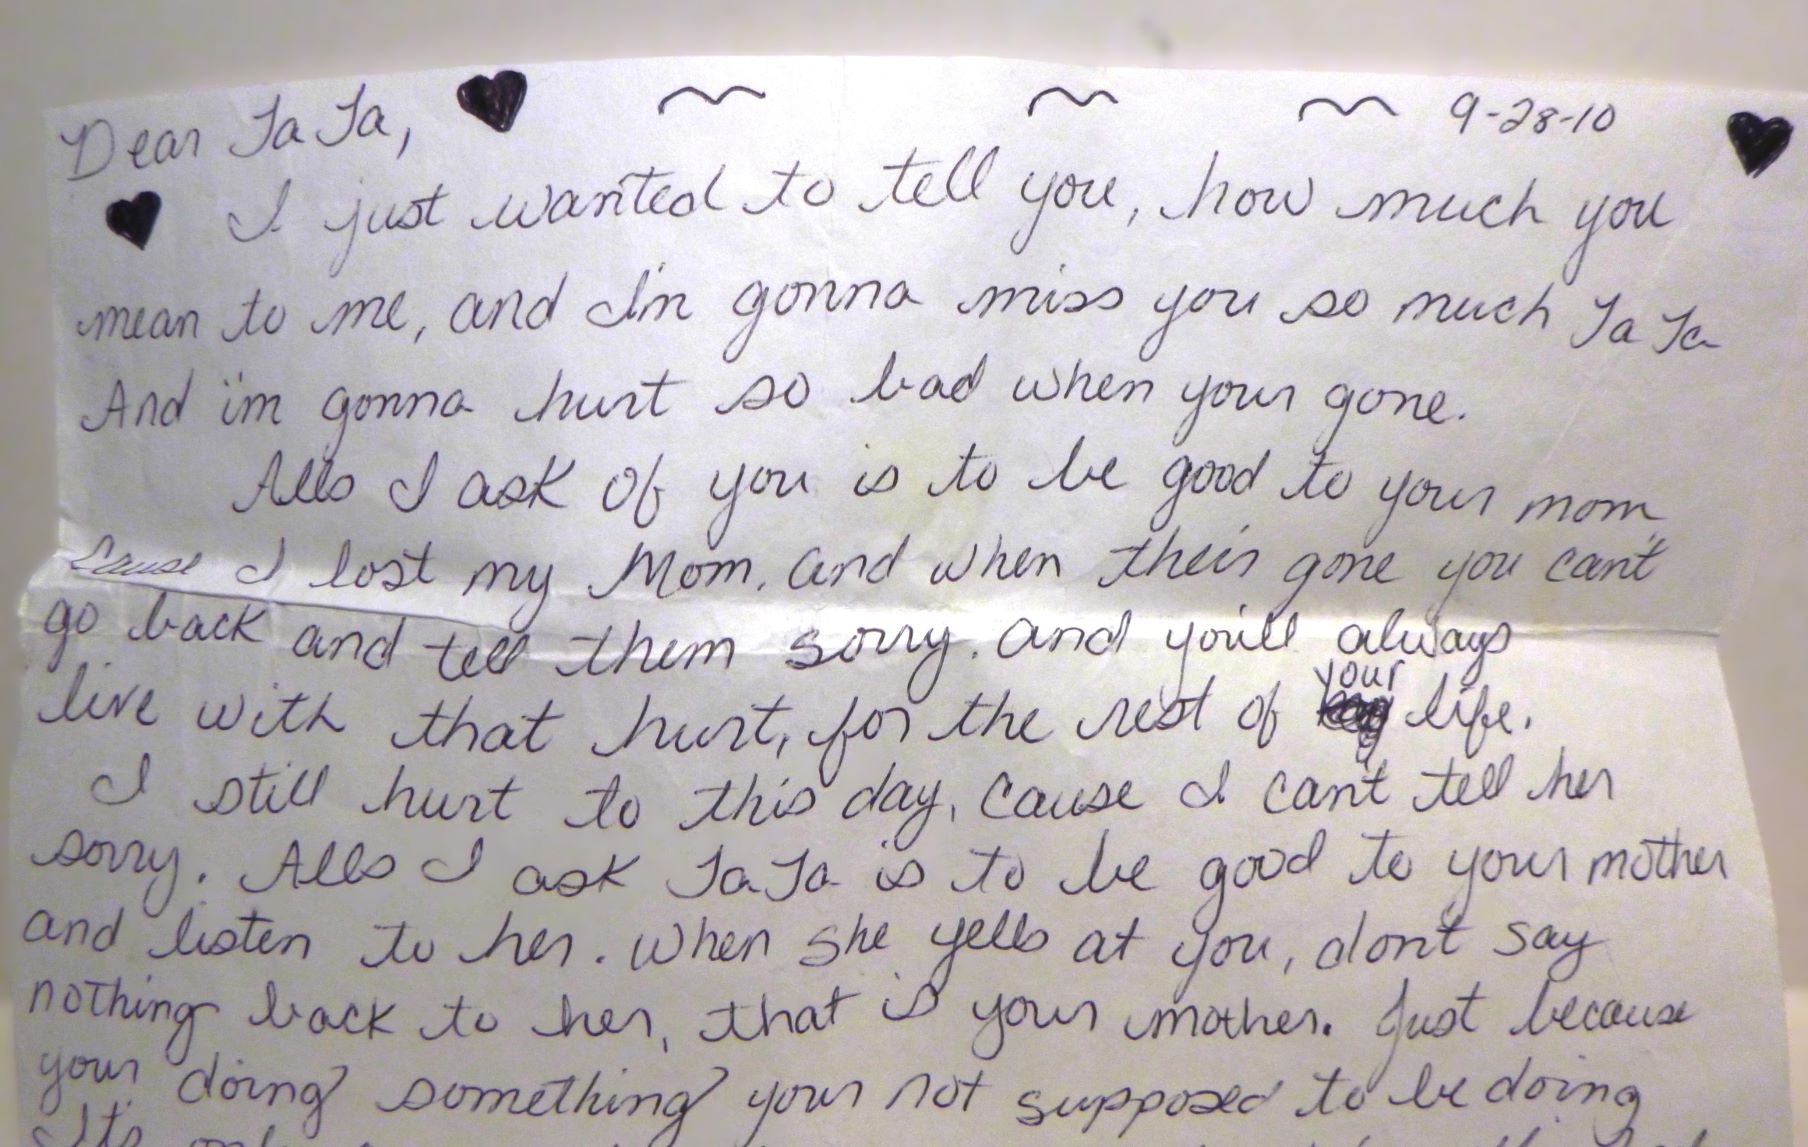 Dear Ja Ja, 9-28-10
I just wanted to tell you, how much you
mean to me, and I'm gonna miss you so much Ja Ja
And i'm gonna hurt so bad when your gone.
Alls I ask of you is to be good to your mom
Cause I lost my Mom. and when their gone you can't
go back and tell them sorry. and you'll always
live with that hurt, for the rest of your life.
I still hurt to this day, cause I can't tell her
sorry. Alls I ask JaJa is to be good to your mother
and listen to her. When she yells at you, don't say
nothing back to her, that is your mother. Just because
your doing something your not supposed to be doing
Its